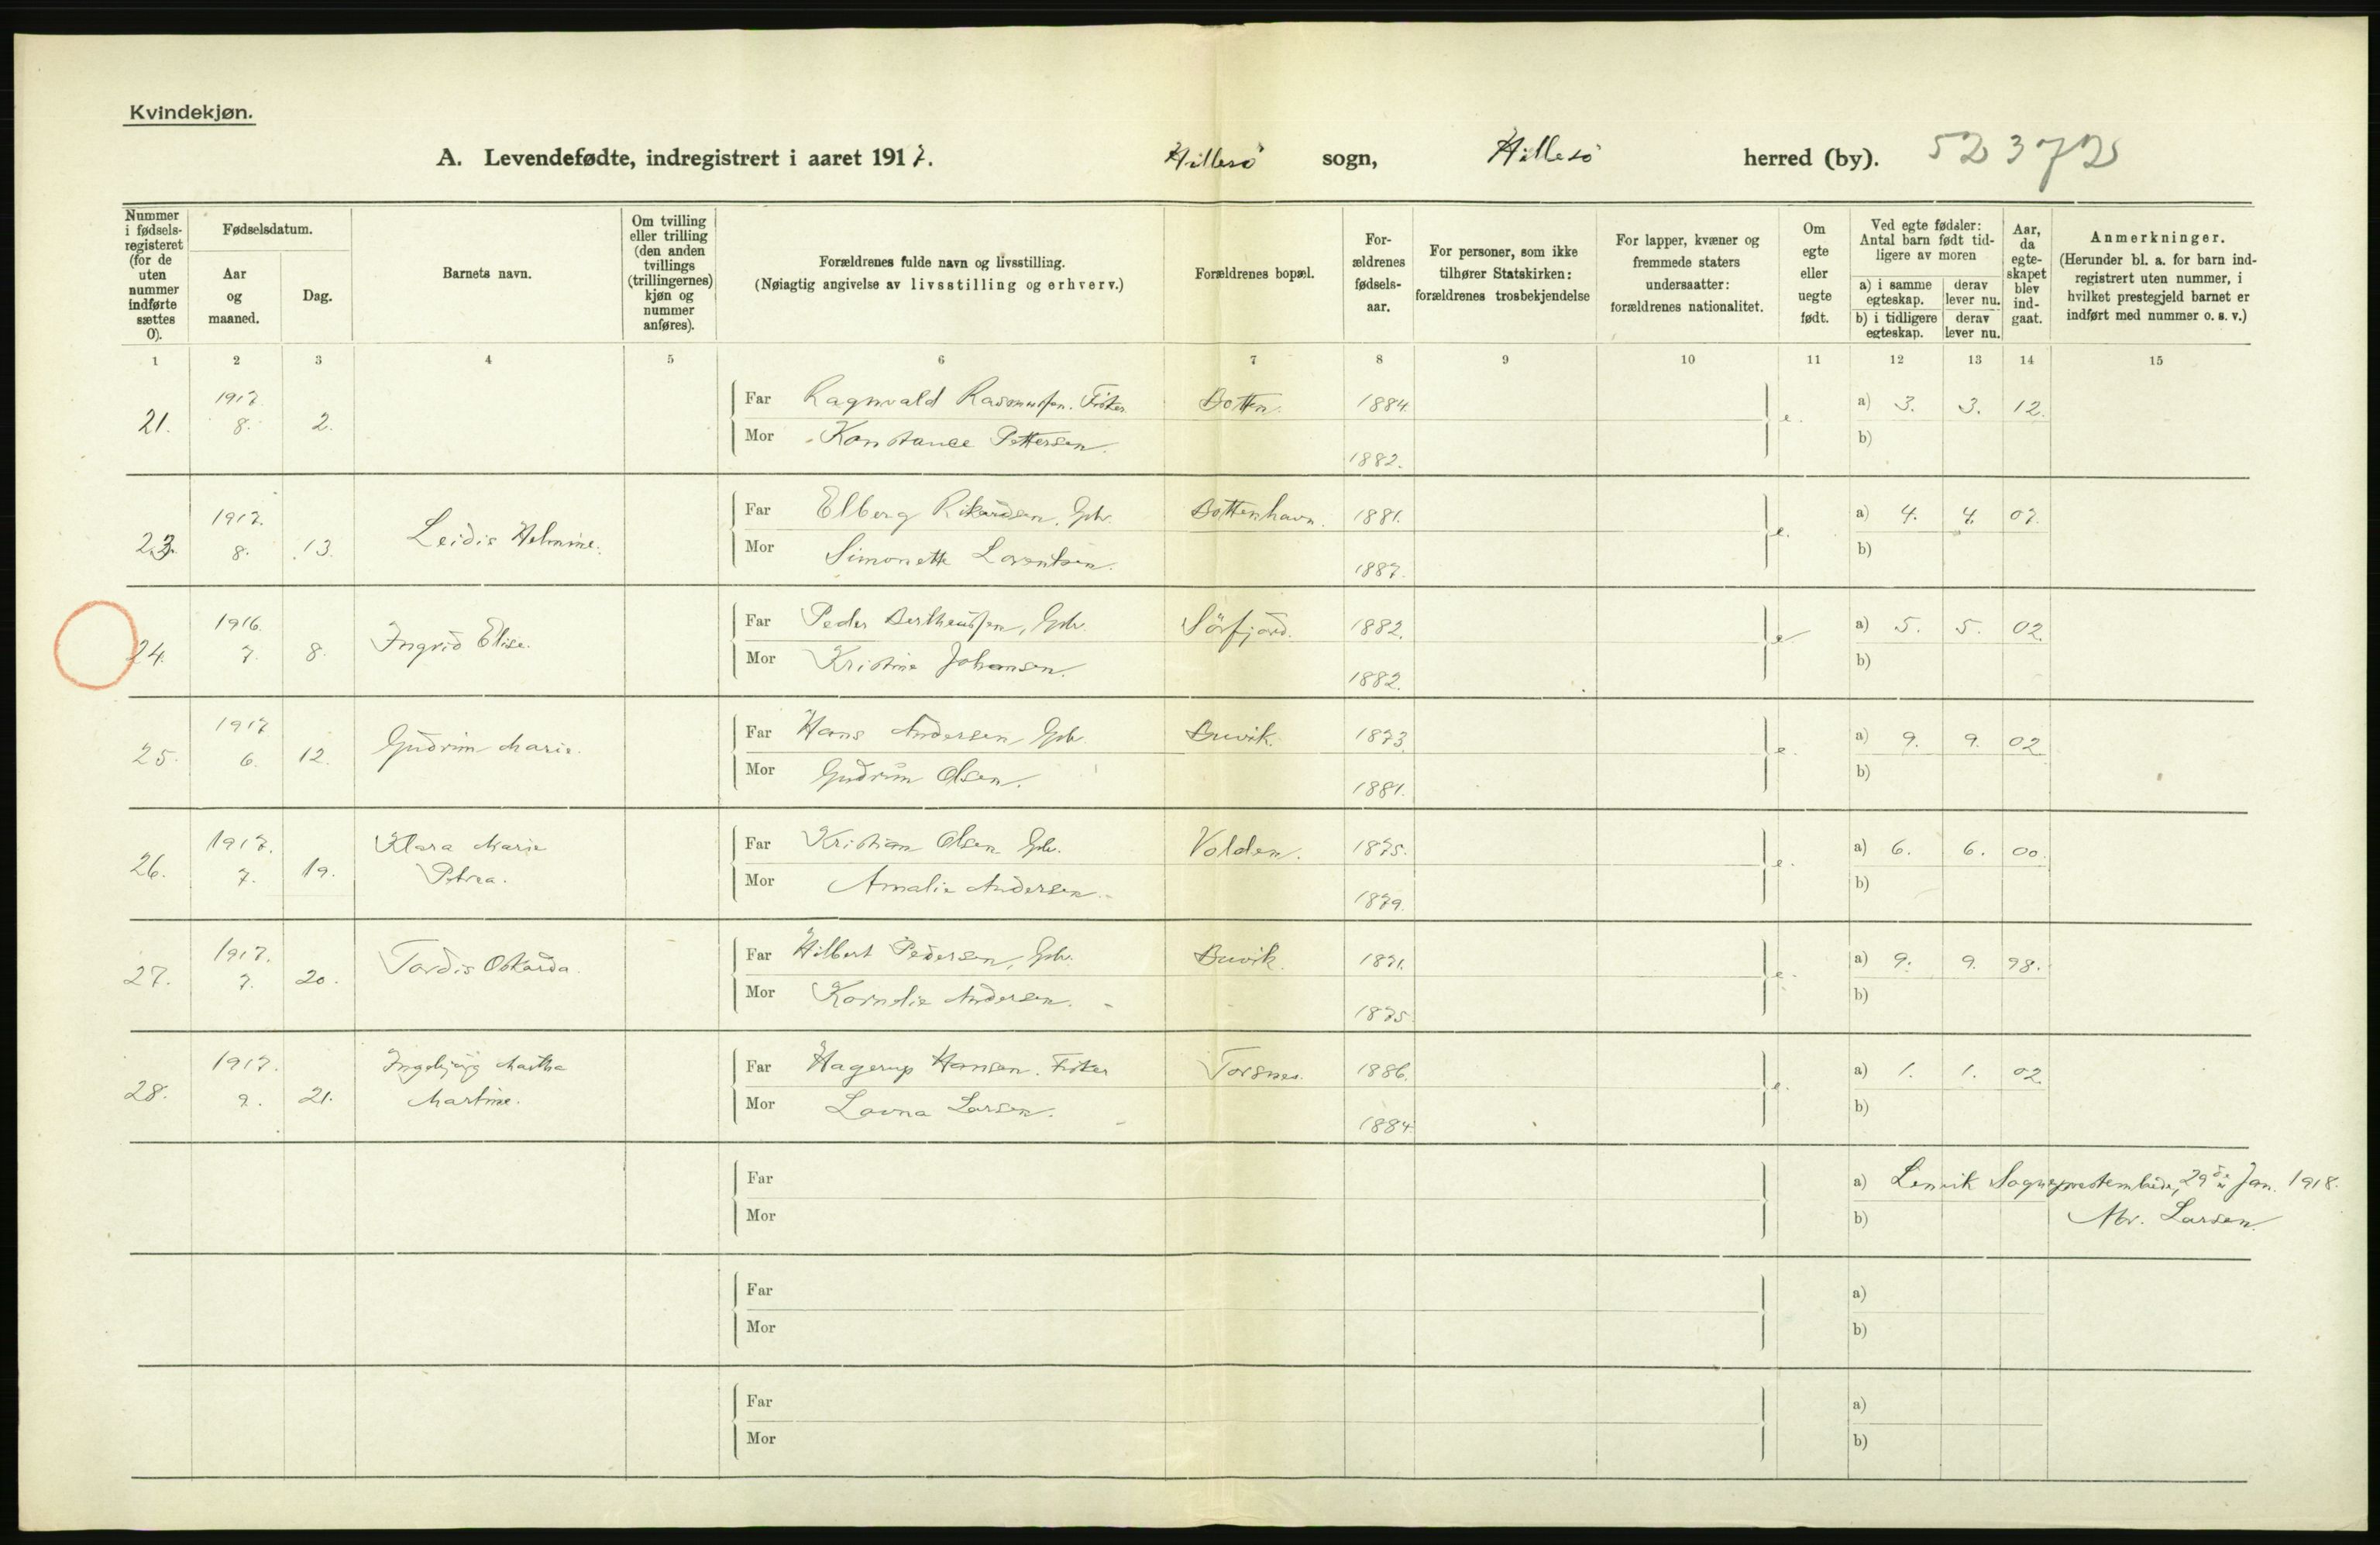 Kvindekjøn.
A. Levendefødte, indregistrert i aaret 1917. Hillesö sogn, Hillesö herred (by). 52372
Nummer i fødselsregisteret (for de uten nummer indførte sættes 0).
Fødselsdatum.
Aar og maaned.
Dag.
Barnets navn.
Om tvilling eller trilling (den anden tvillings (trillingernes) kjøn og nummer anføres).
Forældrenes fulde navn og livsstilling.
(Nøiagtig angivelse av livsstilling og erhverv.)
Forældrenes bopæl.
Forældrenes fødselsaar.
For personer, som ikke tilhører Statskirken: forældrenes trosbekjendelse
For lapper, kvæner og fremmede staters undersaatter: forældrenes nationalitet.
Om egte eller uegte født.
Ved egte fødsler: Antal barn født tidligere av moren
a) i samme egteskap. derav lever nu.
b) i tidligere egteskap. derav lever nu.
Aar, da egteskapet blev indgaat.
Anmerkninger.
(Herunder bl. a. for barn indregistrert uten nummer, i hvilket prestegjeld barnet er indført med nummer o. s. v.)
1 2 3 4 5 6 7 8 9 10 11 12 13 14 15
21. 1917. 8. 2. Far Ragnvald Rasmussen. Fisker Botten. 1884. e. a) 3. 3. 12.
Mor Konstance Pettersen. 1882. b)
23. 1917. 8. 13. Leidis Helmine. Far Elberg Rikardsen, Gbr. Bottenhavn. 1881. e. a) 4. 4. 07.
Mor Simonette Lorentsen. 1887. b)
24. 1916. 7. 8. Ingrid Elise. Far Peder Bertheussen, Gbr. Sörfjord. 1882. e a) 5. 5. 02.
Mor Kristine Johansen. 1882. b)
25. 1917 6. 12. Gudrun Marie. Far Hans Andersen, Gbr. Buvik. 1873. e. a) 9. 9. 02.
Mor Gudrun Olsen. 1881. b)
26. 1917. 7. 19. Klara Marie Petrea. Far Kristian Olsen Gbr. Volden. 1875. e. a) 6. 6. 00.
Mor Amalie Andersen. 1879. b)
27. 1917. 7. 20. Tordis Oskarda. Far Hilbert Pedersen, Gbr. Buvik. 1871. e. a) 9. 9. 98.
Mor Kornelie Andersen. 1875. b)
28. 1917. 9. 21. Ingebjörg Martha Martine. Far Hagerup Hansen. Fisker Torsnes. 1886. e. a) 1. 1. 02.
Mor Lovna Larsen. 1884. b)
Far a) Lenvik Sogneprestembede, 29de Jan. 1918.
Mor b) Larsen.
Far a)
Mor b)
Far a)
Mor b)